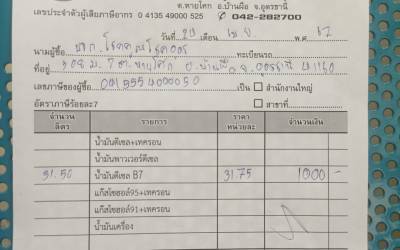 ต.หายโศก อ.บ้านผือ จ.อุดรธานี
เลขประจำตัวผู้เสียภาษีอากร 0 4135 49000 525 042-282700
วันที่ 20 เดือน เม.ย. พ.ศ. 62
นามผู้ซื้อ หจก. โชคคูณโชคถาวร ทะเบียนรถ
ที่อยู่ 108 ม.7 ต. อ.บ้านผือ จ.อุดรธานี 41160
เลขภาษีของผู้ซื้อ เป็น สำนักงานใหญ่
อัตราภาษีร้อยละ7 สาขาที่
จำนวนลิตร รายการ ราคาหน่วยละ จำนวนเงิน
น้ำมันดีเซล+เทครอน
น้ำมันพาวเวอร์ดีเซล
31.50 น้ำมันดีเซล B7 31.75 1000 -
แก๊สโซฮอล์95+เทครอน
แก๊สโซฮอล์91+เทครอน
น้ำมันเครื่อง